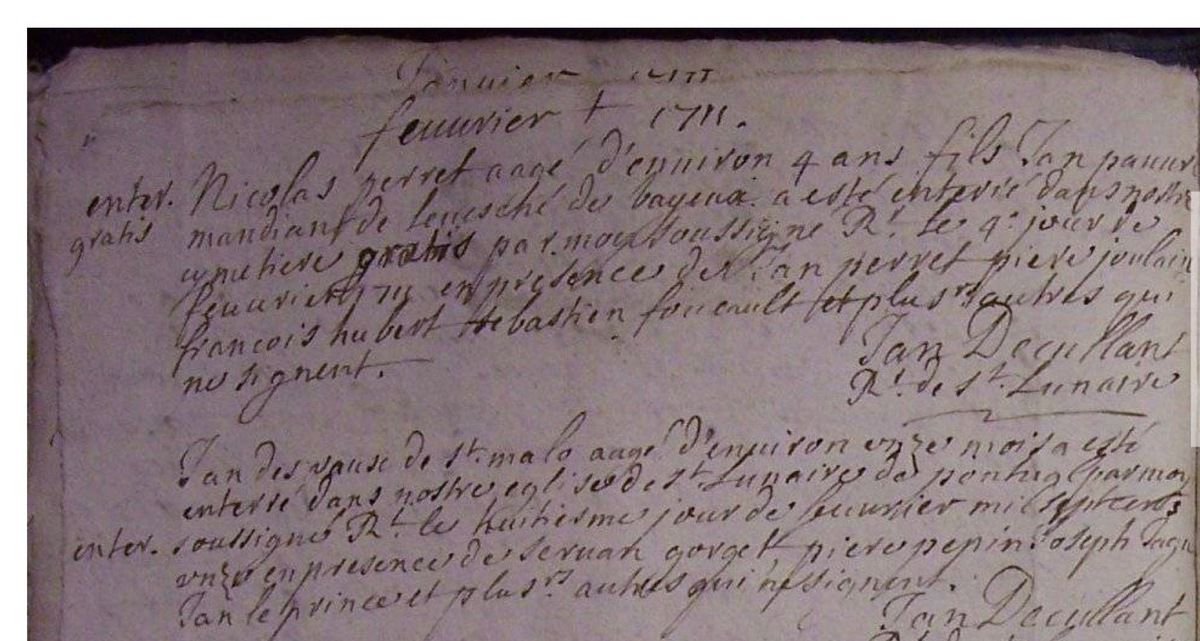 Januier 1711
feuurier + 1711.
enter. gratis
Nicolas perret aagé d'enuiron 4 ans fils Jan pauure
mandiant de leuesché de bayeux a esté interré dans nostre
cymetiere gratis par moy soussigné Rr. le 4e jour de
feuurier 1711 en presence de Jan perret piere joulain
francois hubert sebastien foucault et plusrs autres qui
ne signent.
Jan Decullant
Rr. de st. Lunaire
Jan des vaux de st. malo aagé d'enuiron vnze mois a esté
enterré dans nostre eglise de st. Lunaire de par moy
enter.
soussigné Rr. le huitiesme jour de feuurier mil sept cents
vnze en presence de seruan gorget piere pepin Joseph
Jan le prince et plusrs autres qui ne signent.
Jan Decullant